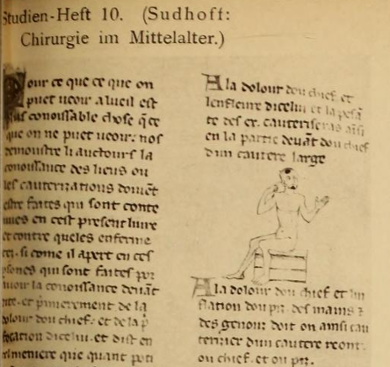 Studien-Heft 10. (Sudhoff:
Chirurgie im Mittelalter.)
our ce que ce que on
puet ueoir a lueil est
plus conoissable chose q̄ ce
que on ne puet ueoir: nos
demoustre li auctours la
conoissance des lieus ou
les cauterizations doiuēt
estre faites qui sont conte
nues en cest present liure
et contre queles enferme
tez si come il apert en ces
qui sont faites por
la conoissance deuāt
et p̄mierement de la
dolour dou chief et de la
dicelui et dist en
maniere que quant
A la dolour dou chief et
lenfleure dicelui et la pesā
te des ex. cauteriseras aīsi
en la partie deuāt dou chief
dun cautere large
A la dolour dou chief et
flation dou piz. des mains
des genouz doit on ainsi cau
teriier dun cautere reont.
ou chief. et ou piz.